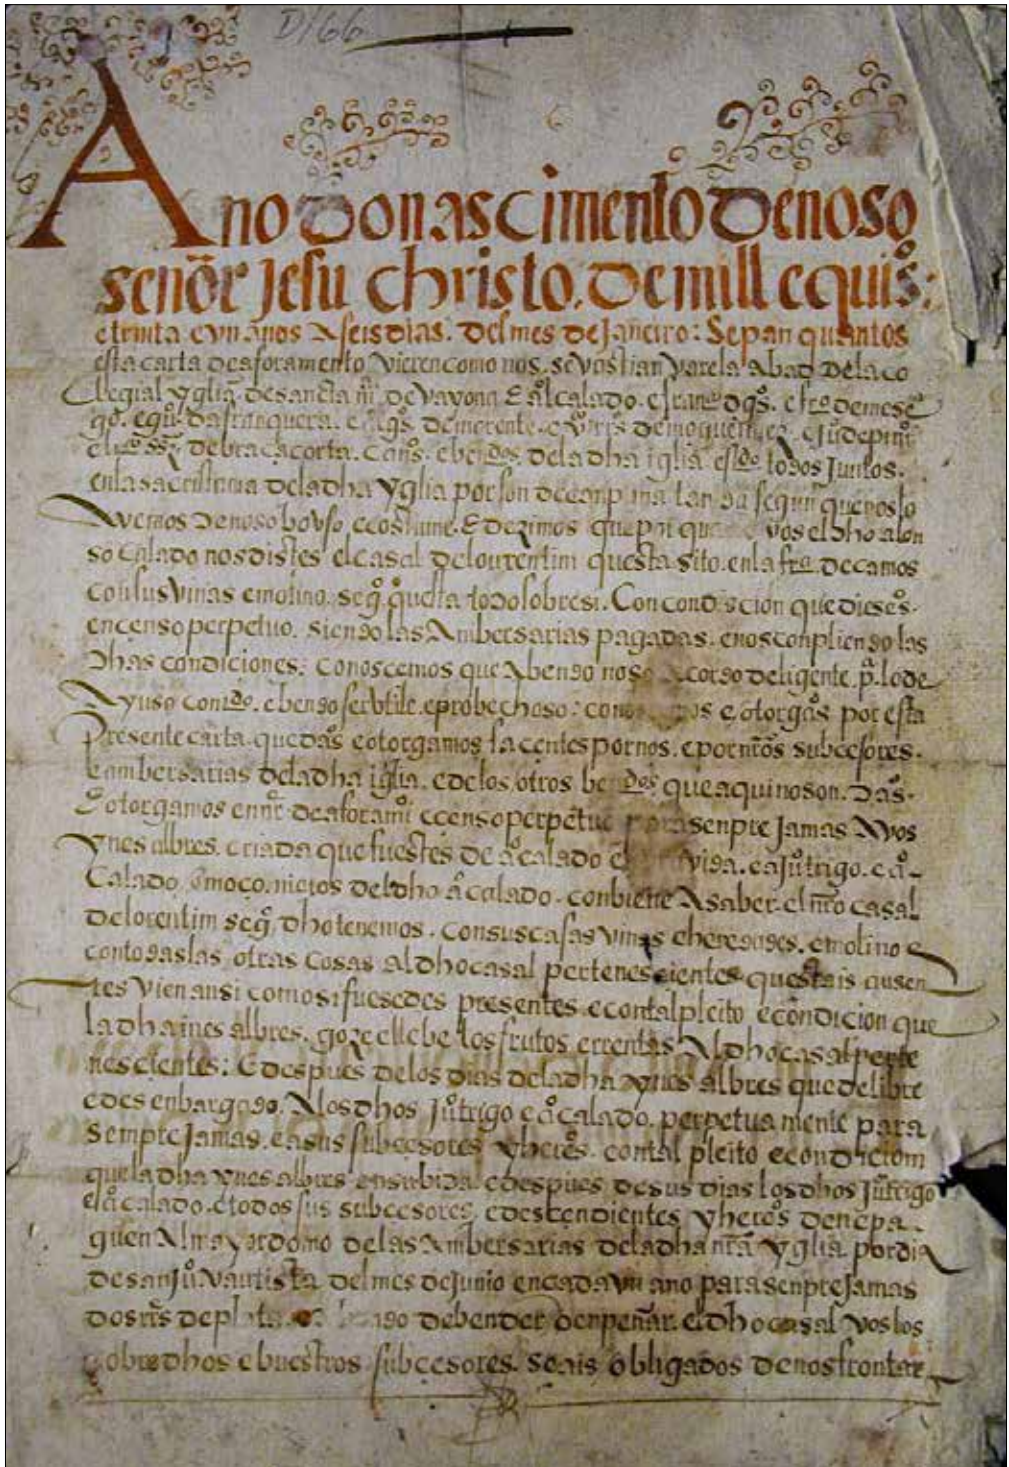 D/66
Ano do nascimento de noso
señor Jesu christo. de mill e quis:
e trinta e vn anos A seis dias. del mes de Janeiro: Sepan quantos
esta carta de aforamento vieren como nos. sevastian varela abad de la co
llegial yglia de sancta mi de vayona E al calado. e franco dgs. e fro de mese
go. e gu. da franquera. e de morente. e
de bracacorta. cans. e de la dha iglia todos Juntos.
en la sacristania de la dha yglia por son de canpana segun que noslo
Avemos de noso bovso e costume. E dezimos que vos el dho alon
so calado nos distes el casal de lourentim questa sito. en la fra. de camos
con sus vinas e molino. segº. questa todo sobre si. Con condiscion que dieseºs.
en censo perpetuo. siendo las Ambersarias pagadas. e nos conpliendo las
dhas condiciones: conoscemos que Abendo noso Acordo deligente. pª. lo de
Ayuso conido. e bendo ser vtile. e probechoso: e otorgaºs por esta
Presente carta. que daºs e otorgamos facentes por nos. e por nrºos subcesores.
e ambersarias de la dha iglia. e de los otros que aqui no son. Daºs.
E otorgamos en nrº de aforamº e censo perpetuo para senpre Jamas A vos
ynes albres. criada que fuestes de aº calado vida. e a Juº trigo. e aº
Calado. e moço. nietos del dho aº calado. conbiene A saber. el nrºo casal
de lorentim segº. dho tenemos. con sus casas vinas e heredades. e molino e
con todas las otras cosas al dho casal pertenescientes questais ausen
tes vien ansi como si fuesedes presentes. e con tal pleito e condicion que
la dha ines albres. goze e llebe los frutos e rrentas Al dho casal perte
nescientes: E despues de los dias de la dha ynes albres que de libre
e desenbargado. A los dhos Juº trigo e aº calado. perpetuamente para
sempre Jamas. e a sus subcesores y hereºs. con tal pleito e condiciom
que la dha ynes albres en su bida e despues de sus dias los dhos Juº trigo
e aº calado. e todos sus subcesores, e descendientes y hereºs den e pa
guen Al mayordomo de las Ambersarias de la dha nrã yglia por dia
de san Juº. vautista del mes de Junio en cada vn ano para senpre Jamas
dos rrs de plata. de bender. o enpeñar. el dho casal vos los
sobredhos e buestros subcesores. seais obligados de nos frontar